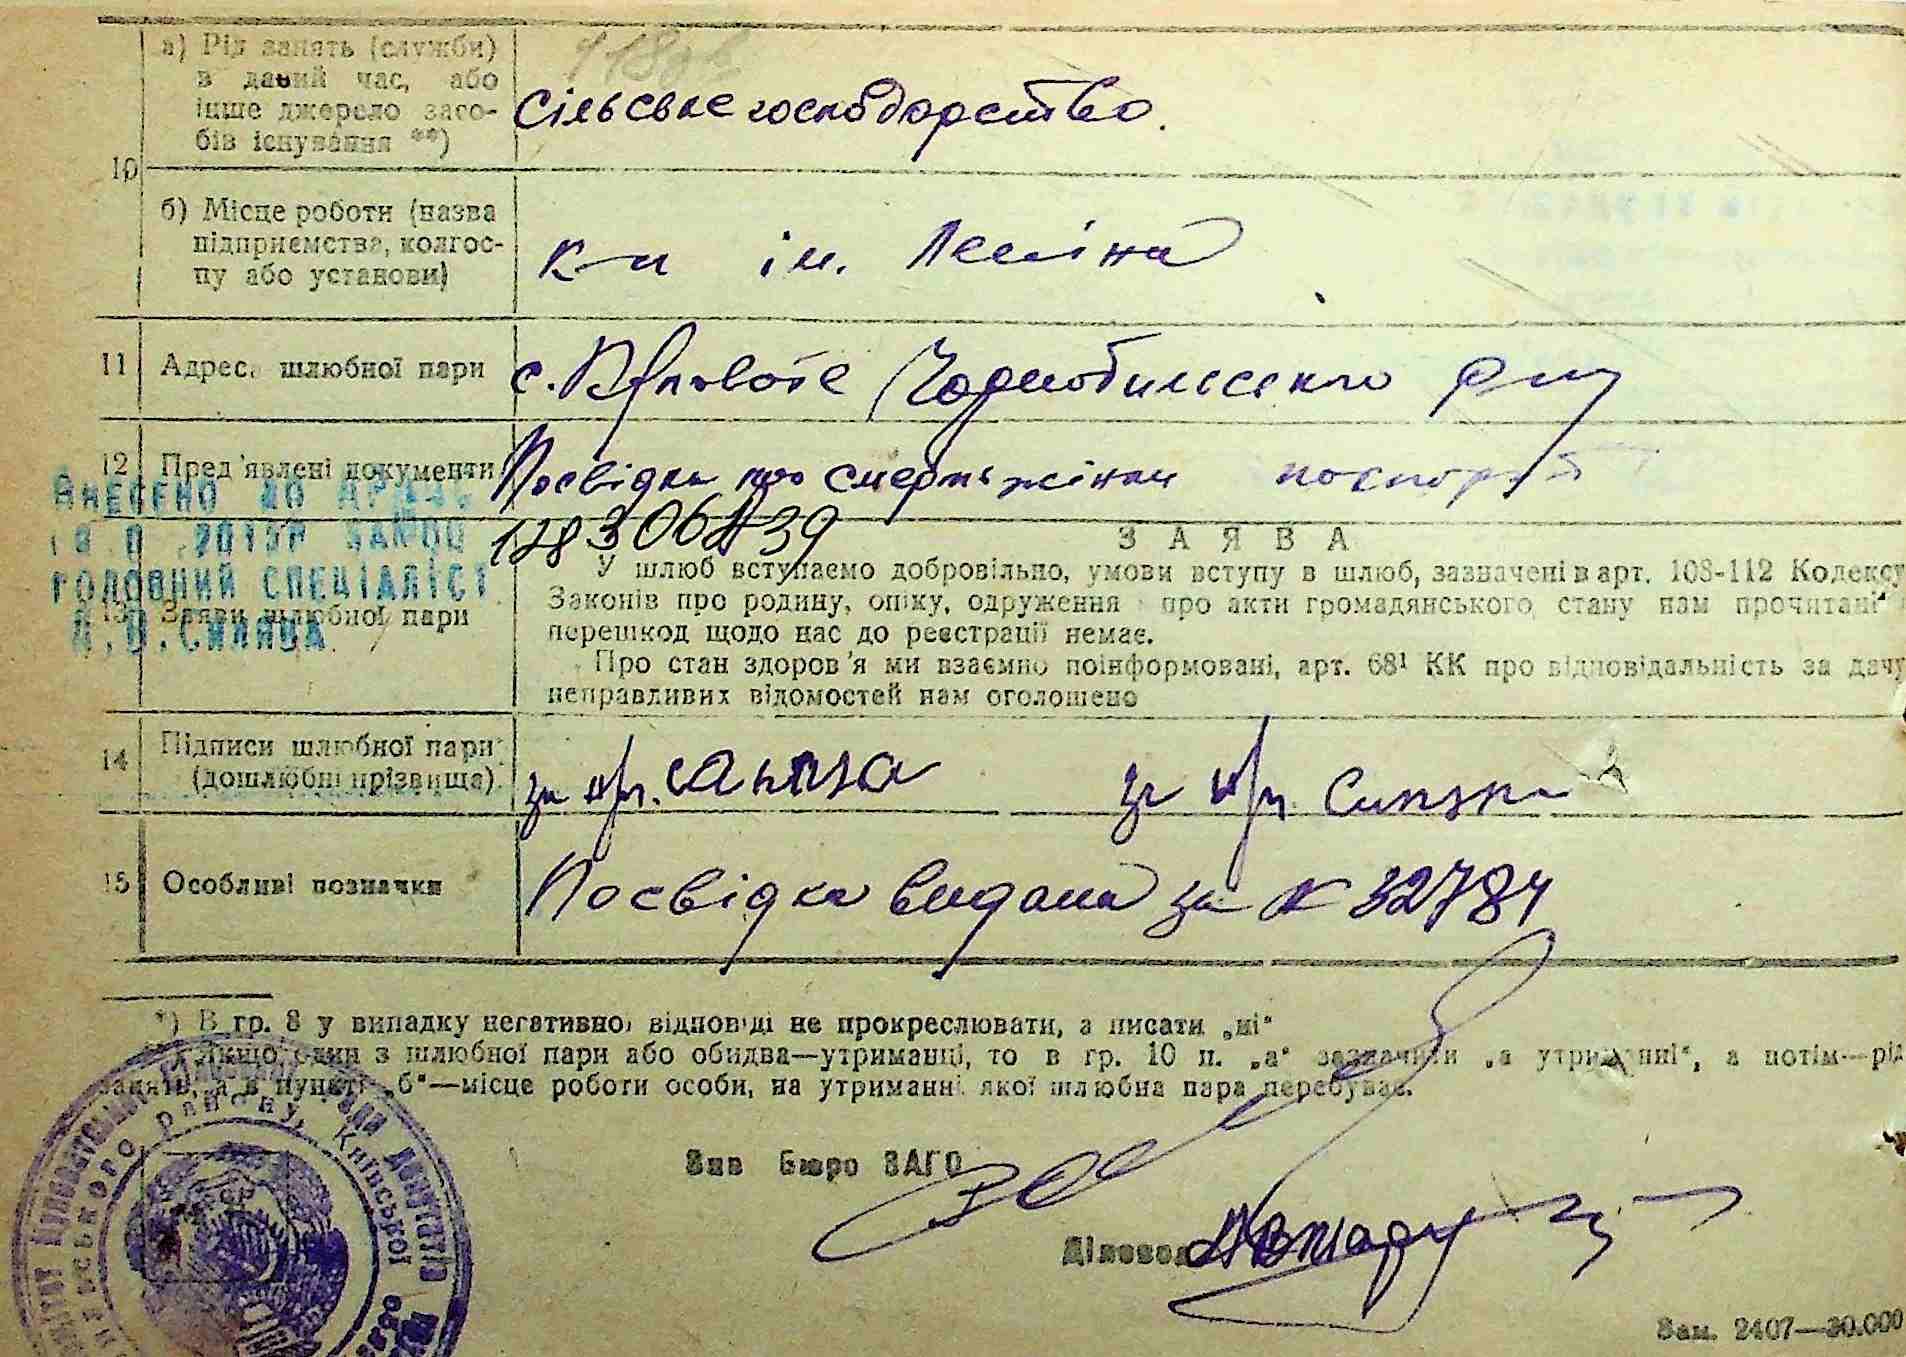 10
а) Рід занять (служби)
в даний час, або
інше джерело засо-
бів існування **)
сільське господарство.
б) Місце роботи (назва
підприємства, колгос-
пу або установи)
к-п ім. Леніна
11 Адреса шлюбної пари
с. Чорнобильського р-ну
12 Пред'явлені документи
Посвідка про смерть жінки паспорт
ВНЕСЕНО ДО
ГОЛОВНИЙ СПЕЦІАЛІСТ
13 Заяви шлюбної пари
ЗАЯВА
У шлюб вступаємо добровільно, умови вступу в шлюб, зазначені в арт. 108-112 Кодексу
Законів про родину, опіку, одруження про акти громадянського стану нам прочитані
перешкод щодо нас до реєстрації немає.
Про стан здоров'я ми взаємно поінформовані, арт. 68¹ КК про відповідальність за дачу
неправдивих відомостей нам оголошено
14 Підписи шлюбної пари
(дошлюбні прізвища)
за
за
15 Особливі позначки
Посвідка видана за № 32784
*) В гр. 8 у випадку негативної відповіді не прокреслювати, а писати „ні“
Якщо один з шлюбної пари або обидва—утриманці, то в гр. 10 п. „а“ зазначити „а утриманні“, а потім—рід
занять, а в пункті „б“—місце роботи особи, на утриманні якої шлюбна пара перебуває.
Зав Бюро ЗАГС
Діловод
району, Київської
Зам. 2407—30.000